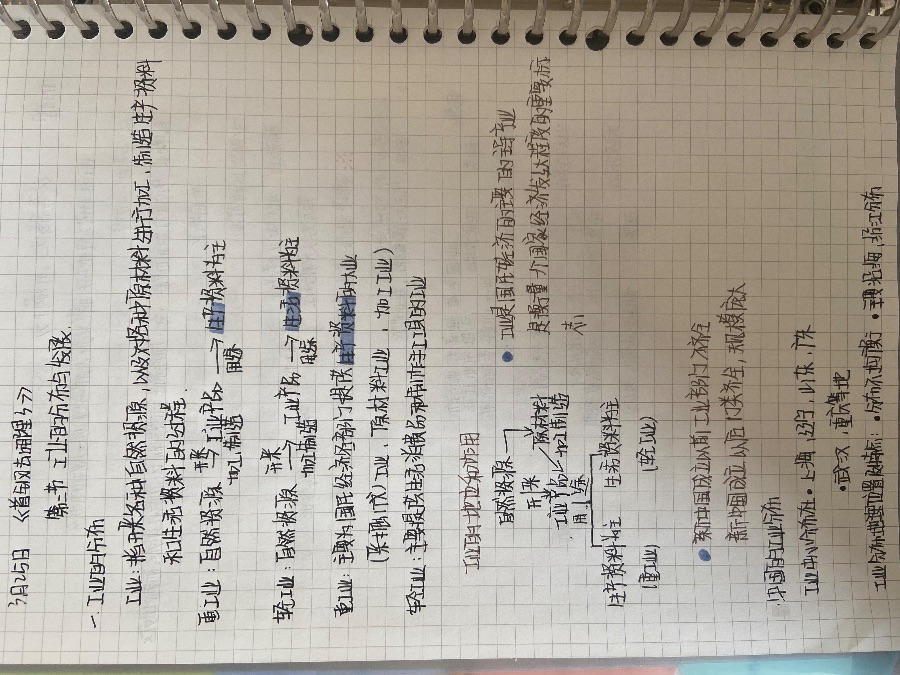 3月25日 《首都风云地理》
第三节 工业的分布与发展
一.工业的分布
工业:指开采各种自然资源,以及对各种原材料进行加工,制造生产资料
和生活资料的过程.
重工业:自然资源 开采→ 工业产品 → 生产资料为主
加工制造 用途
轻工业:自然资源 开采→ 工业产品 → 生活资料为主
加工制造 用途
重工业:主要为国民经济各部门提供生产资料的工业
(采掘(伐)工业、原材料工业、加工工业)
轻工业:主要提供生活消费品和制作手工工具的工业
工业的地位和作用
自然资源
开采 原材料
工业产品 加工制造
用途
生产资料为主 生活资料为主
(重工业) (轻工业)
•工业是国民经济的主要的主导产业
是衡量一个国家经济发达程度的重要标
志
•新中国成立以前工业部门不齐全
新中国成立以后门类齐全,规模庞大
中国的工业分布
工业中心分布在•上海,辽宁,山东,广东
•武汉,重庆等地
工业分布主要位置及特点:•分布不均衡 •主要沿海,沿江分布